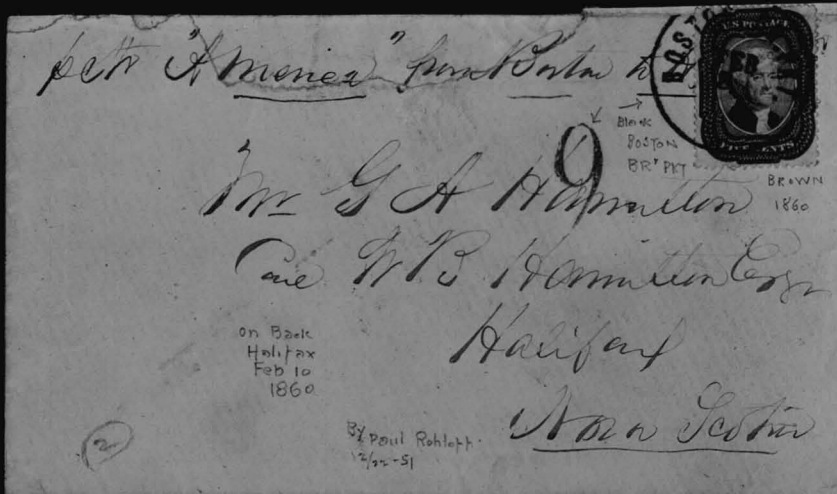 per "America" from Boston to
BOSTON
U.S. POSTAGE
FIVE CENTS
9
Black
BOSTON
BR' PKT
BROWN
1860
Mr G A Hamilton
Care W B Hamilton Esqr
Halifax
Nova Scotia
on Back
Halifax
Feb 10
1860
2
By Paul Rohloff
12/22-51